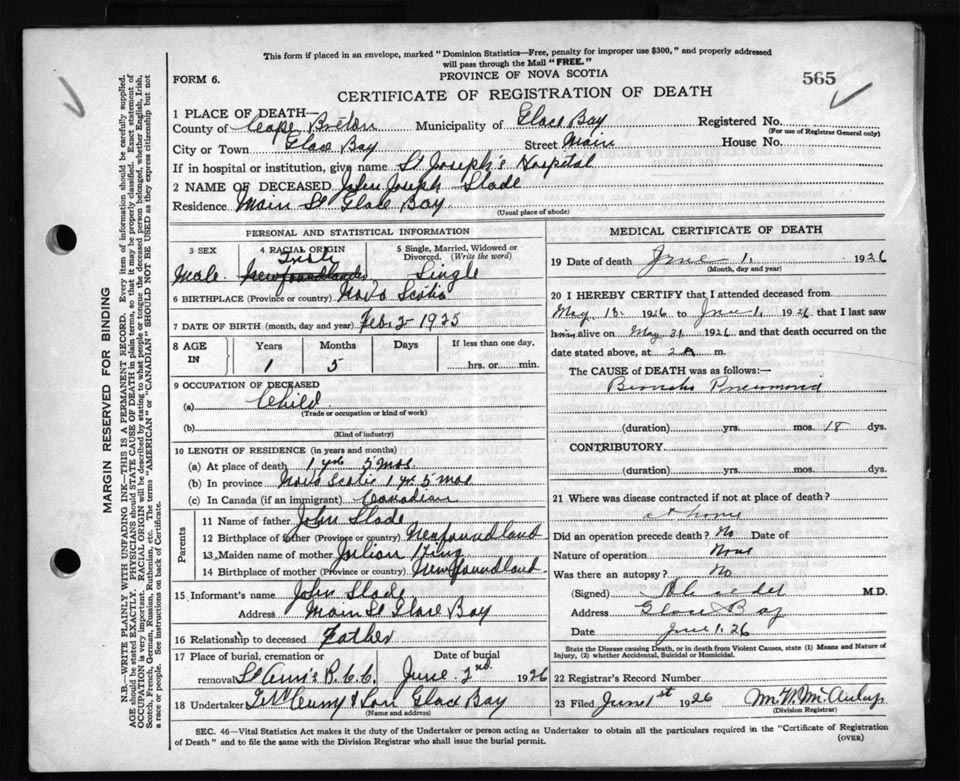 This form if placed in an envelope, marked "Dominion Statistics—Free, penalty for improper use $300," and properly addressed
will pass through the Mail "FREE."
FORM 6.
PROVINCE OF NOVA SCOTIA
565
CERTIFICATE OF REGISTRATION OF DEATH
1 PLACE OF DEATH—
County of Cape Breton Municipality of Glace Bay Registered No.
(For use of Registrar General only)
City or Town Glace Bay Street Main House No.
If in hospital or institution, give name St Joseph's Hospital
2 NAME OF DECEASED John Joseph Slade
Residence Main St Glace Bay
(Usual place of abode)
PERSONAL AND STATISTICAL INFORMATION
3 SEX 4 RACIAL ORIGIN 5 Single, Married, Widowed or
Divorced. (Write the word)
Irish
Male Newfoundlander Single
6 BIRTHPLACE (Province or country) Nova Scotia
7 DATE OF BIRTH (month, day and year) Feb 2 1925
8 AGE IN Years Months Days If less than one day,
1 5 hrs. or min.
9 OCCUPATION OF DECEASED
(a) Child
(Trade or occupation or kind of work)
(b)
(Kind of industry)
10 LENGTH OF RESIDENCE (in years and months)
(a) At place of death 1 yrs 5 mos
(b) In province Nova Scotia 1 yr 5 mos
(c) In Canada (if an immigrant) Canadian
Parents
11 Name of father John Slade
12 Birthplace of father (Province or country) Newfoundland
13 Maiden name of mother King
14 Birthplace of mother (Province or country) Newfoundland
15 Informant's name John Slade
Address Main St Glace Bay
16 Relationship to deceased Father
17 Place of burial, cremation or Date of burial
removal St Ann's R.C.C. June 2nd 1926
18 Undertaker & Son Glace Bay
(Name and address)
MEDICAL CERTIFICATE OF DEATH
19 Date of death June 1, 1926
(Month, day and year)
20 I HEREBY CERTIFY that I attended deceased from
May 13 1926 to June 1, 1926 that I last saw
him alive on May 31 1926 and that death occurred on the
date stated above, at 2 A m.
The CAUSE of DEATH was as follows:—
Broncho Pneumonia
(duration) yrs. mos. 18 dys.
CONTRIBUTORY
(duration) yrs. mos. dys.
21 Where was disease contracted if not at place of death?
at home
Did an operation precede death? No Date of
Nature of operation None
Was there an autopsy? No
(Signed) M.D.
Address Glace Bay
Date June 1, 26
State the Disease causing Death, or in death from Violent Causes, state (1) Means and Nature of
Injury, (2) whether Accidental, Suicidal or Homicidal.
22 Registrar's Record Number
23 Filed June 1st 1926
(Division Registrar)
SEC. 46—Vital Statistics Act makes it the duty of the Undertaker or person acting as Undertaker to obtain all the particulars required in the "Certificate of Registration
of Death" and to file the same with the Division Registrar who shall issue the burial permit.
(OVER)
MARGIN RESERVED FOR BINDING
N.B.—WRITE PLAINLY WITH UNFADING INK—THIS IS A PERMANENT RECORD. Every item of information should be carefully supplied.
AGE should be stated EXACTLY. PHYSICIANS should STATE CAUSE OF DEATH in plain terms, so that it may be properly classified. Exact statement of
OCCUPATION is very important. RACIAL ORIGIN will be described by stating to what people or tongue the deceased person belonged, whether English, Irish,
Scotch, French, German, Russian, Ruthenian, etc. The terms "AMERICAN" or "CANADIAN" SHOULD NOT BE USED as they express citizenship but not
a race or people. See instructions on back of Certificate.